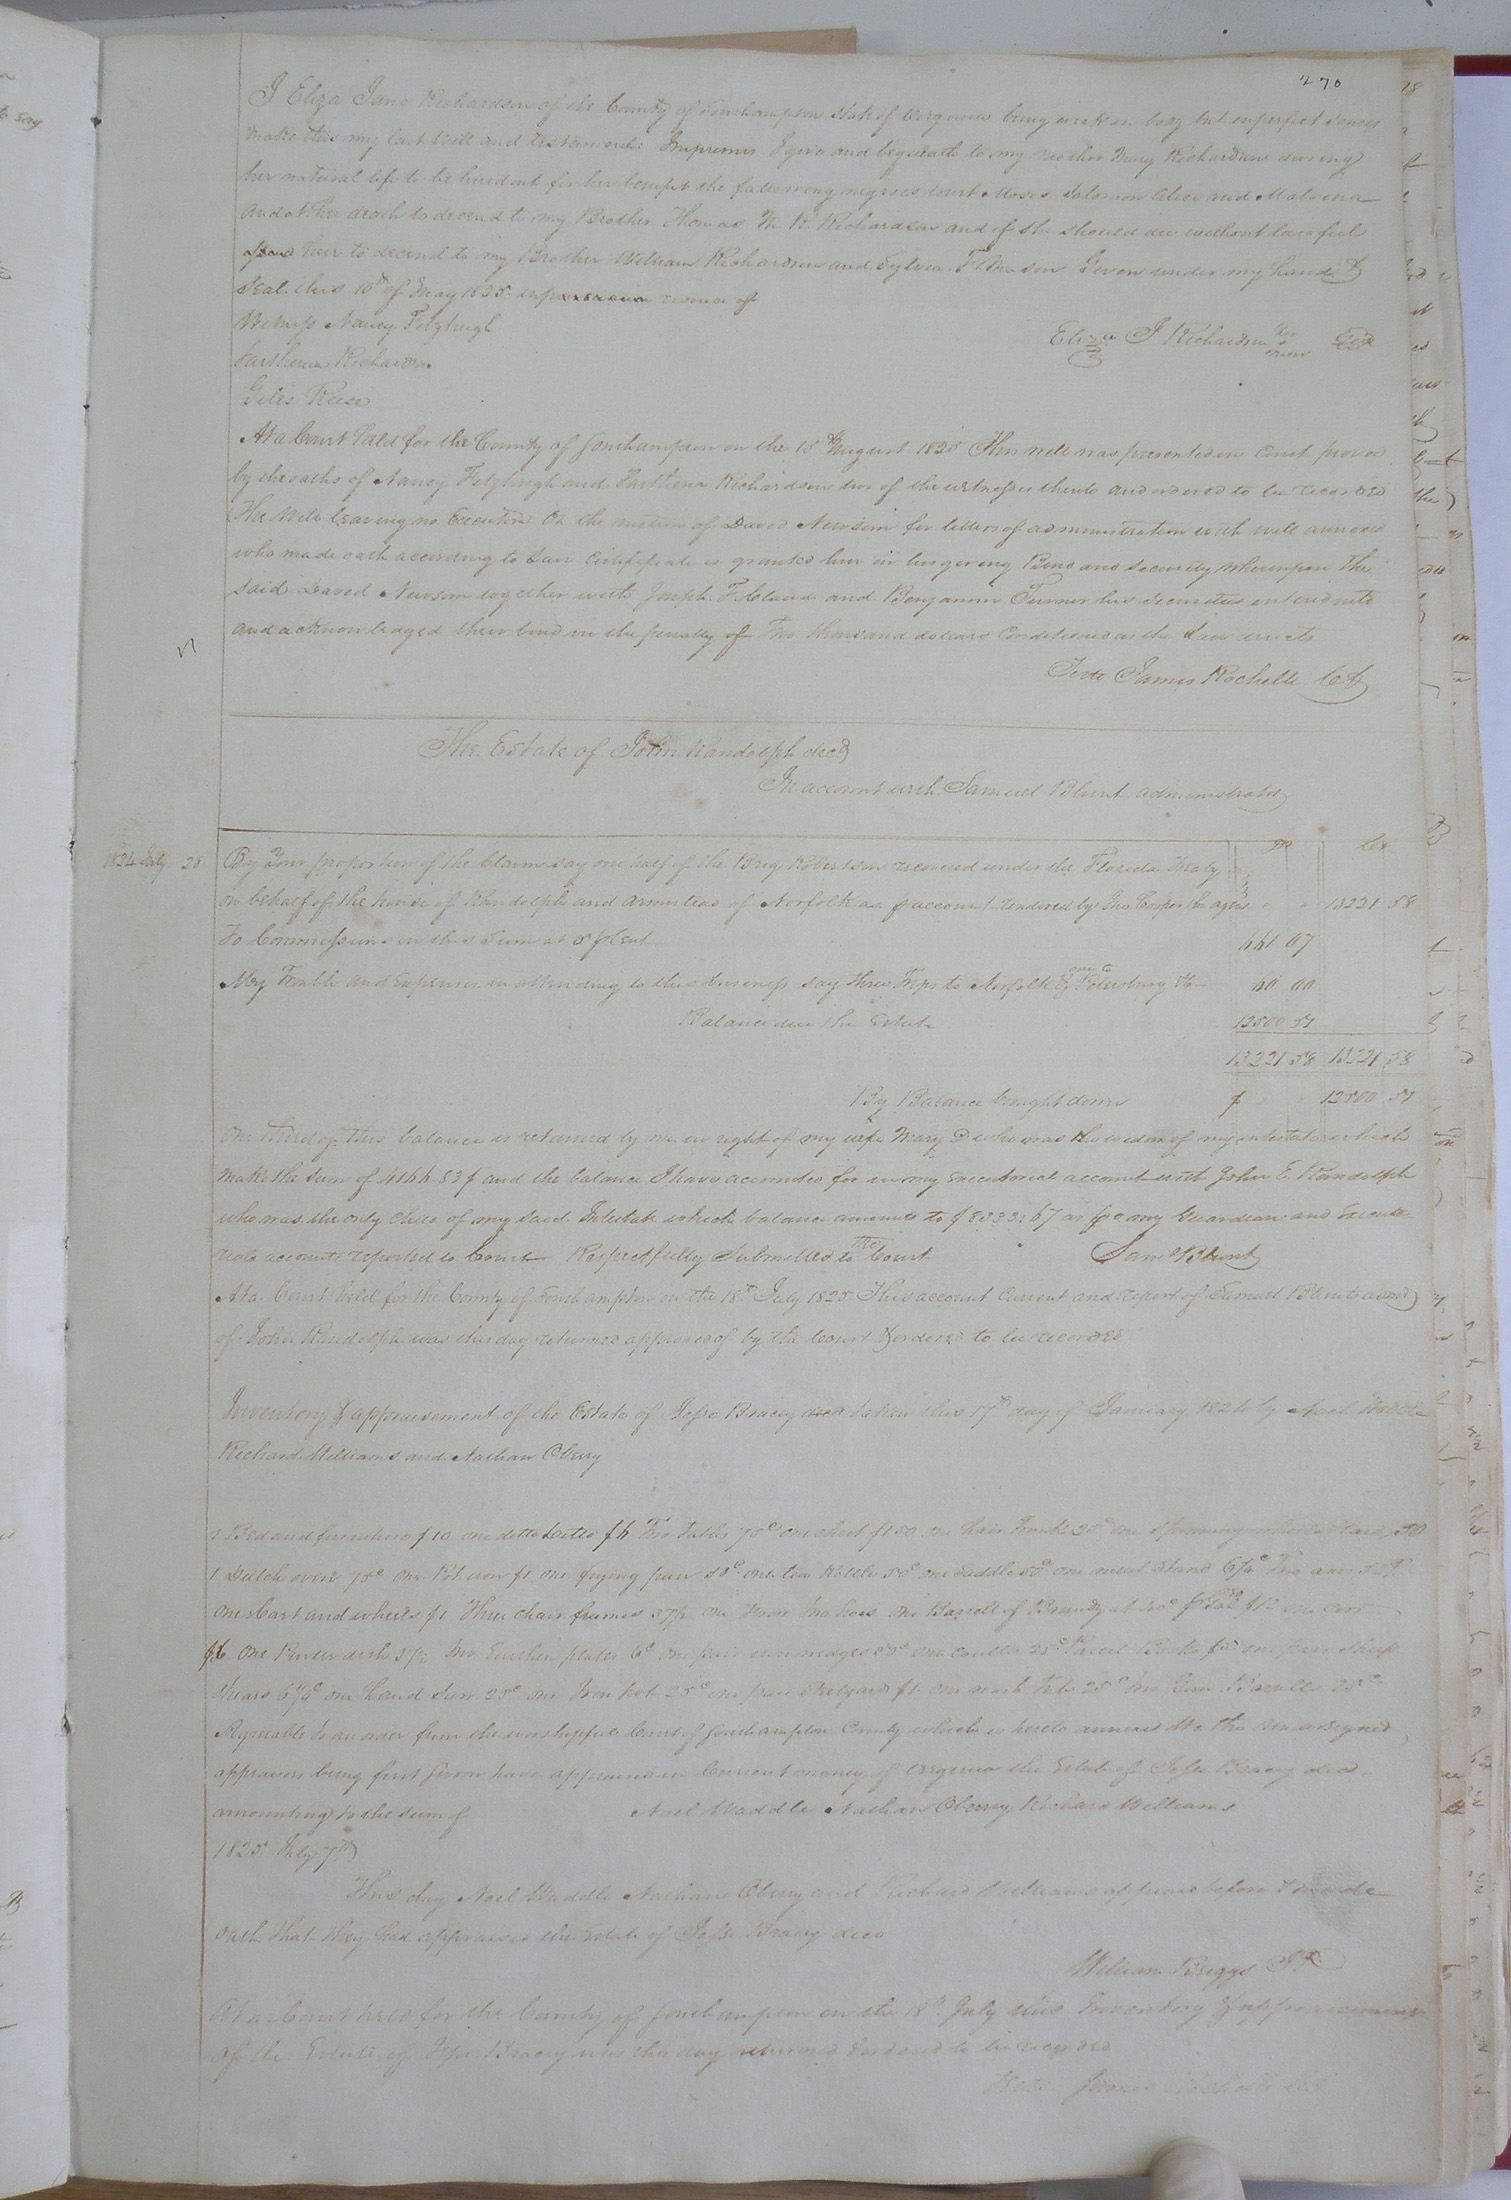 270
I Eliza Jane Richardson of the County of Southampton State of Virginia being weak in body but in perfect senses
make this my last will and testament: Imprimis I give and bequeath to my mother Mary Richardson during
her natural life to be hired out for her benefit the following negroes Moses Solomon Alice and Malvina
and at her death to decend to my Brother Thomas Richardson and if she should die without lawful
heir to decend to my Brother William Richardson and Sylvia T Mason Given under my hand &
Seal this 10th of May 1825 in
Witness Nancy Fitzhugh
Parthena Richardson
Eliza J Richardson her mark
Giles Reese
At a Court held for the County of Southampton on the 15th August 1825 This will was presented in Court proved
by the oaths of Nancy Fitzhugh and Parthena Richardson two of the witnesses thereto and ordered to be recorded
The Will leaving no Executor On the motion of David Newsom for letters of administration with will annexed
who made oath according to Law Certificate is granted him in his giving Bond and security whereupon The
said David Newsom together with Joseph T Claud and Benjamin Turner his securities entered into
and acknowledged their bond in the penalty of Two thousand dollars Conditioned as the Law directs
Teste James Rochelle CC
The Estate of John Randolph decd
In account with Samuel Blunt administrator
Dr Cr
1824 July 28 By Your proportion of the Claim say one half of the Brig Robertson recovered under the Florida Treaty
on behalf of the house of Randolph and Armistead of Norfolk as p account rendered by Jno. Cooper the agent 13221 58
To Commissions on this Sum at 5 p Cent 661 07
My Trouble and Expenses in attending to this business say three Trips to Norfolk & one to Petersburg &c 60 00
Balance due the Estate 12500 51
13221 58 13221 58
By Balance brought down $ 12500 51
One third of this balance is retained by me in right of my wife Mary D who was the widow of my intestate which
make the sum of 4166.83 $ and the balance I have accounted for in my Executorial account with John E Randolph
who was the only child of my said Intestate which balance amounts to $8333:67 as p my Guardian and Execu
accounts reported to Court Respectfully Submitted to the Court Saml Blunt
At a Court held for the County of Southampton on the 18th July 1825 This account Current and report of Samuel Blunt admr
of John Randolph was this day returned approved of by the Court & ordered to be recorded
Inventory & appraisement of the Estate of Jesse Bracy decd taken this 17th day of January 182 by Noel Waddle
Richard Williams and Nathan Obery
1 Bed and furniture $10 one ditto ditto $6 Two tables 75c one chest $1.50 one hair Trunk 25c one Spinning wheel 50
1 Dutch oven 75c one Pot iron $1 one frying pan 50c one tea Kettle 50c one saddle 50c one meat stand 6¼c Two axes 50c
one Cart and wheels $1 Three chair frames 37½ one Barrell of Brandy at $12 one
$6 one Pewter dish 37½ two Earthen plates 6c one pair iron wedges 50c one coulter 25c Parcel Books $5 one pair sheep
shears 6¼c one hand Saw 25c one Iron pot 25c one pair Stelyards $1 one wash Tub 25c two Barrells 25c
Agreeable to an order from the worshipful Court of Southampton County which is hereto annexed We the undersigned
appraisors being first sworn have appraised in Current money of Virginia the Estate of Jesse Bracy decd
amounting to the sum of Noel Waddle Nathan Obery Richard Williams
1825 July 7th
This day Noel Waddle Nathan Obery and Richard Williams appeared before & made
oath that they had appraised the Estate of Jesse Bracy decd
William Briggs J.P.
At a Court held for the County of Southampton on the 18th July this Inventory & appraisement
of the Estate of Jesse Bracy was this day returned & ordered to be recorded
Teste James Rochelle